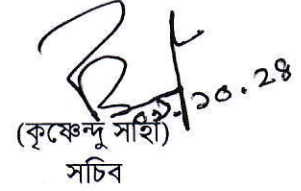 ১০.২৪
(কৃষ্ণেন্দু সাহা)
সচিব